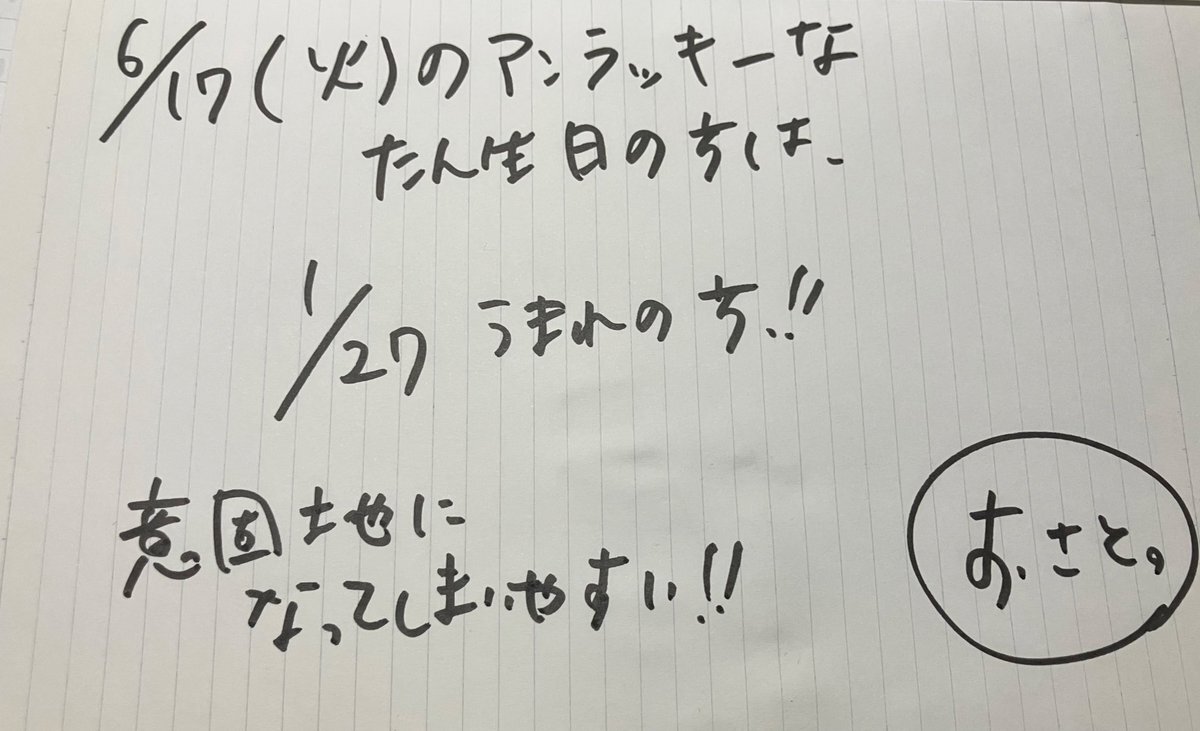 6/17(火)のアンラッキーな
たん生日の方は、
1/27 うまれの方!!
意固地に
なってしまいやすい!!
あ、さと。